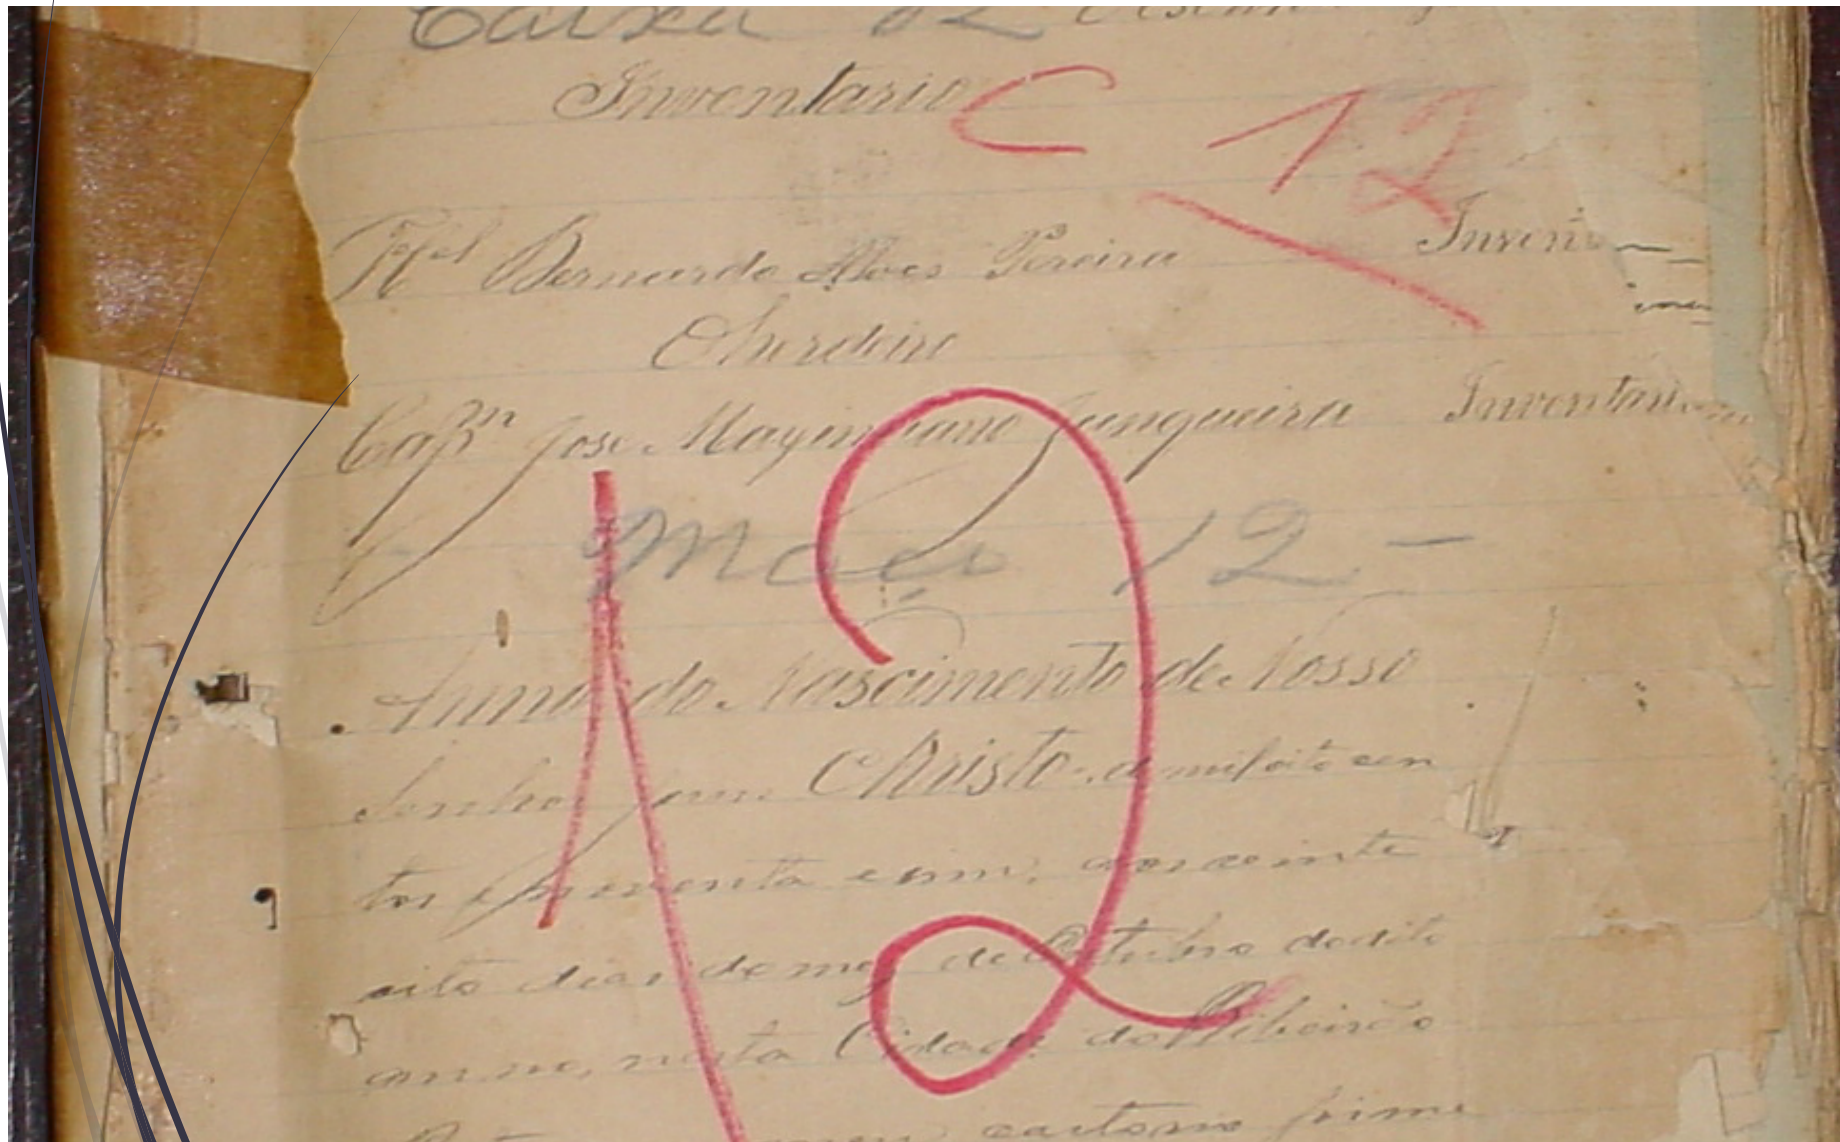 Caixa 12
Inventario
C 12
Mel Bernardo Alves Pereira Inven
Oherdeiro
Capm José Maximiano Junqueira Inventari
Maço 12 -
12
Anno do Nascimento de Nosso
Senhor Jesus Christo de mil oito cen
tos e noventa e um, aos vinte
oito dias do mez de Outubro do dito
anno, nesta Cidade do Ribeirão
cartorio